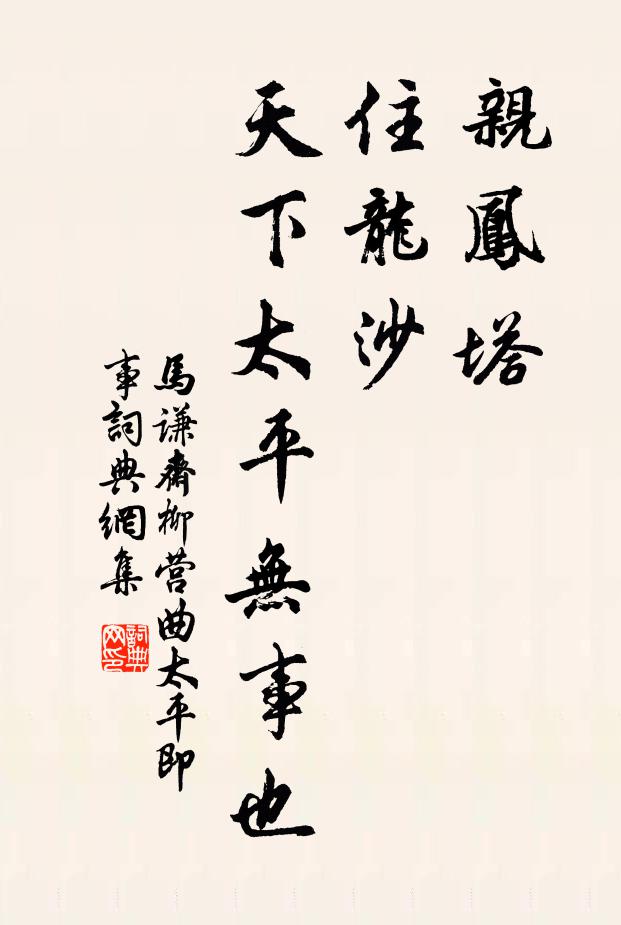 親鳳塔
住龍沙
天下太平無事也
馬谦齋柳营曲太平即
事詞典網集
詞典
网印